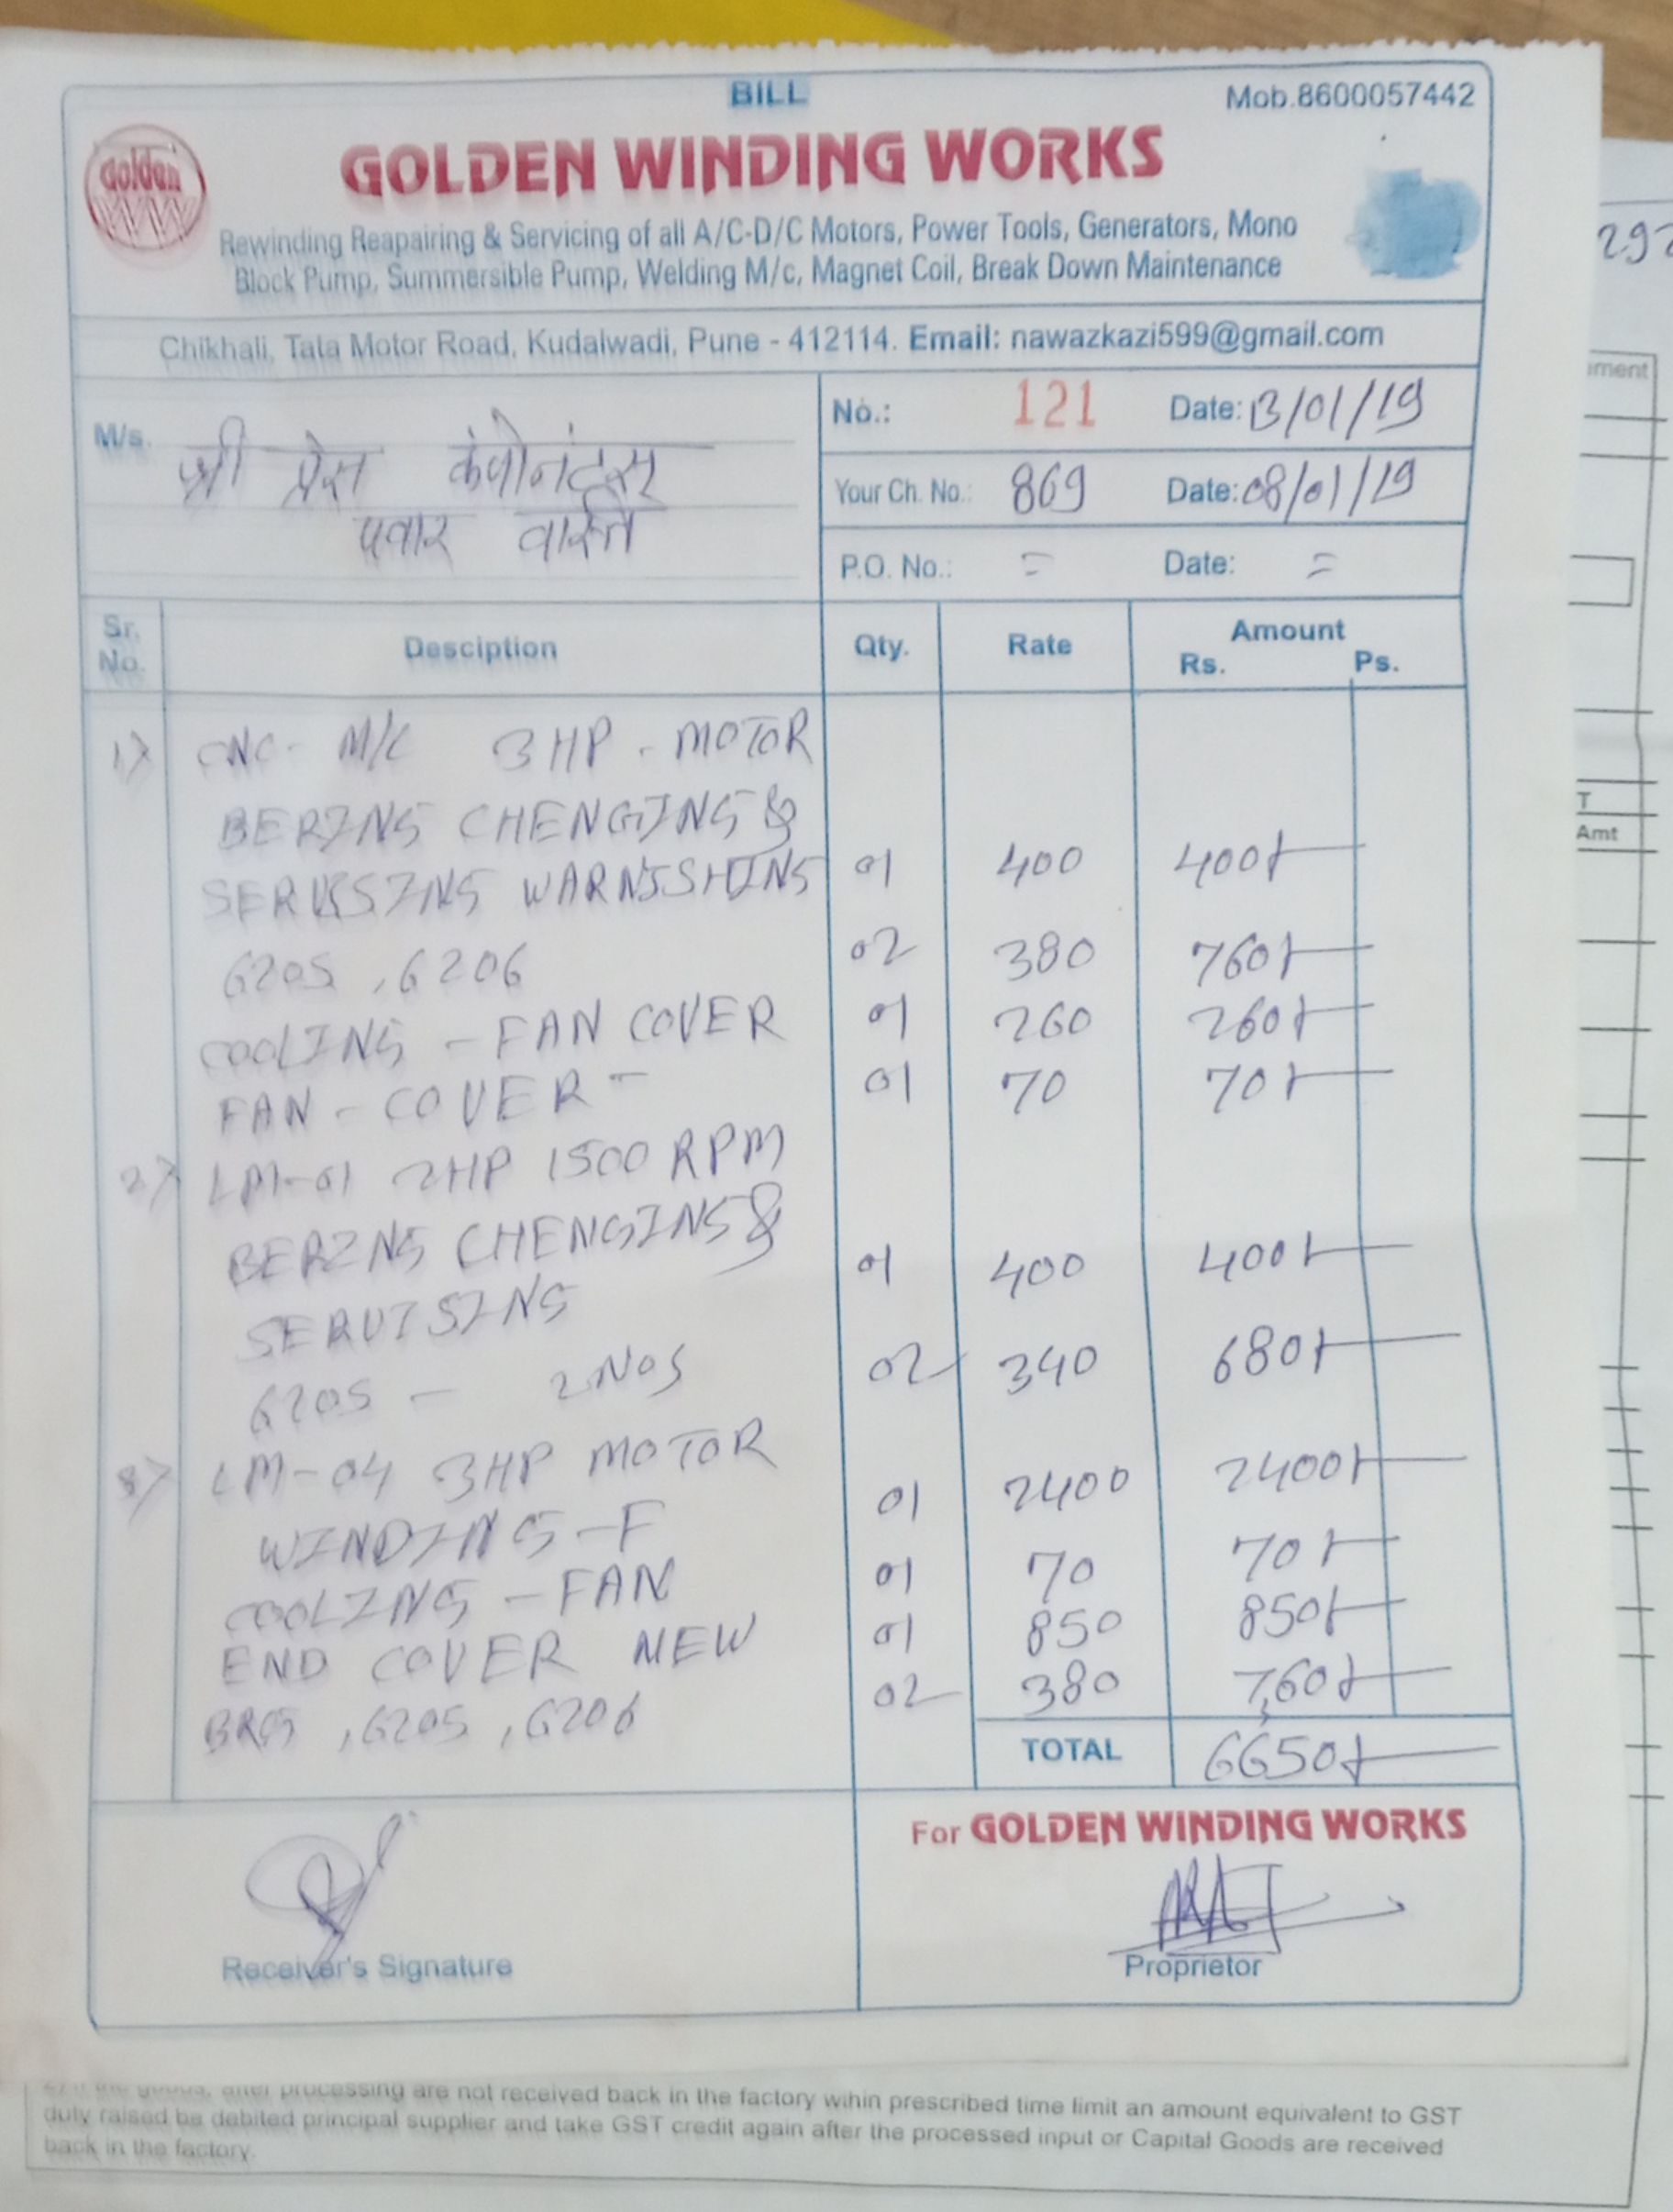 BILL
Mob.8600057442
Golden
WW
GOLDEN WINDING WORKS
Rewinding Reapairing & Servicing of all A/C-D/C Motors, Power Tools, Generators, Mono
Block Pump, Summersible Pump, Welding M/c, Magnet Coil, Break Down Maintenance
Chikhali, Tata Motor Road, Kudalwadi, Pune - 412114. Email: nawazkazi599@gmail.com
M/s. श्री प्रेस कंपोनंटस्
पवार वस्ति
No.: 121 Date: 13/01/19
Your Ch. No.: 869 Date: 08/01/19
P.O. No.: = Date: =
Sr. No. Desciption Qty. Rate Amount Rs. Ps.
1) CNC- M/C 3HP - MOTOR
BERING CHENGING &
SERVISING WARNISHING 01 400 400/-
6205, 6206 02 380 760/-
COOLING - FAN COVER 01 260 260/-
FAN - COVER - 01 70 70/-
2) LM-01 2HP 1500 RPM
BERING CHENGING & 01 400 400/-
SERVISING
6205 - 2NOS 02 340 680/-
3) LM-04 3HP MOTOR
WINDING - F 01 2400 2400/-
COOLING - FAN 01 70 70/-
END COVER NEW 01 850 850/-
BRG, 6205, 6206 02 380 760/-
TOTAL 6650/-
For GOLDEN WINDING WORKS
Receiver's Signature
Proprietor
292
ment
T
Amt
the goods, after processing are not received back in the factory wihin prescribed time limit an amount equivalent to GST
duty raised be debited principal supplier and take GST credit again after the processed input or Capital Goods are received
back in the factory.